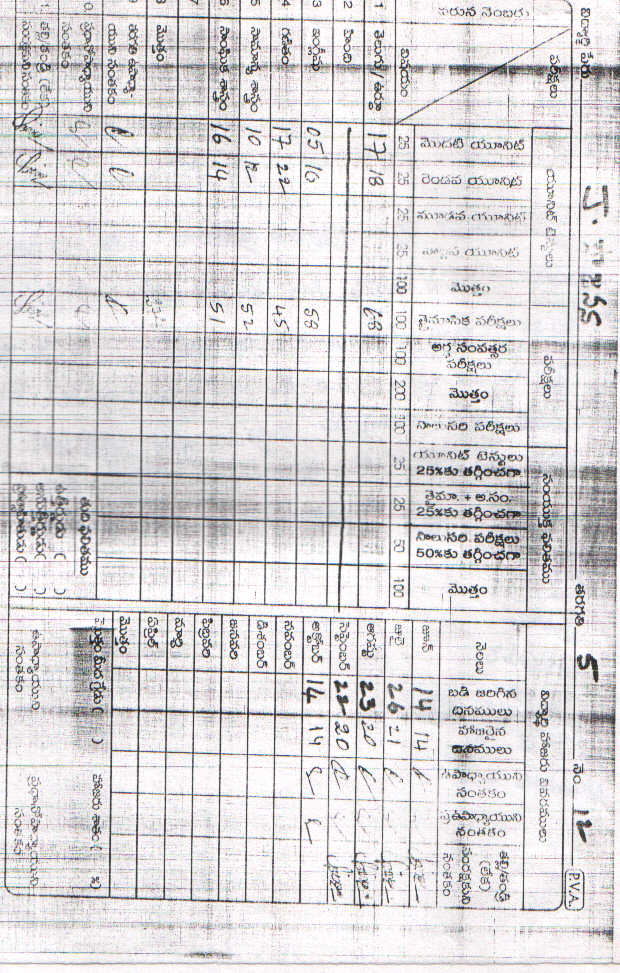 విద్యార్థి పేరు J. తరగతి 5 నెం 12 P.V.A.
పరీక్షలు యూనిట్ టెస్టులు పరీక్షలు సంయుక్త ఫలితము
వరుస నెంబరు విషయం మొదటి యూనిట్ రెండవ యూనిట్ మూడవ యూనిట్ యూనిట్ మొత్తం త్రైమాసిక పరీక్షలు అర్ధ సంవత్సర పరీక్షలు మొత్తం సాలుసరి పరీక్షలు యూనిట్ టెస్టులు 25%కు తగ్గించగా త్రైమా. + అ.సం. 25%కు తగ్గించగా సాలుసరి పరీక్షలు 50%కు తగ్గించగా మొత్తం
25 25 25 25 100 100 100 200 100 25 25 50 100
1 తెలుగు / ఉర్దూ 17 18 68
2 హింది
3 ఇంగ్లీషు 05 10 58
4 గణితం 17 22 45
5 సామాన్య శాస్త్రం 10 12 52
6 సాంఘిక శాస్త్రం 16 14 51
7
8 మొత్తం
తరగతి ఉపాధ్యా యుని సంతకం
ప్రధానోపాధ్యాయుని సంతకం
తుది ఫలితము
ఉత్తీర్ణుడు ( )
విద్యార్థి హాజరు వివరములు
నెలలు బడి జరిగిన దినములు హాజరైన దినములు ఉపాధ్యాయుని సంతకం ప్రఉపాధ్యాయుని సంతకం తల్లి/తండ్రి (లేక) సంరక్షకుని సంతకం
జూన్ 14 14
జులై 26 21
ఆగష్టు 23 20
సెప్టెంబర్ 22 20
అక్టోబర్ 14 14
నవంబర్
డిశంబర్
జనవరి
ఫిబ్రవరి
మార్చి
ఏప్రిల్
మొత్తం
హాజరు శాతం ( %)
ఉపాధ్యాయుని సంతకం ప్రధానోపాధ్యాయుని సంతకం